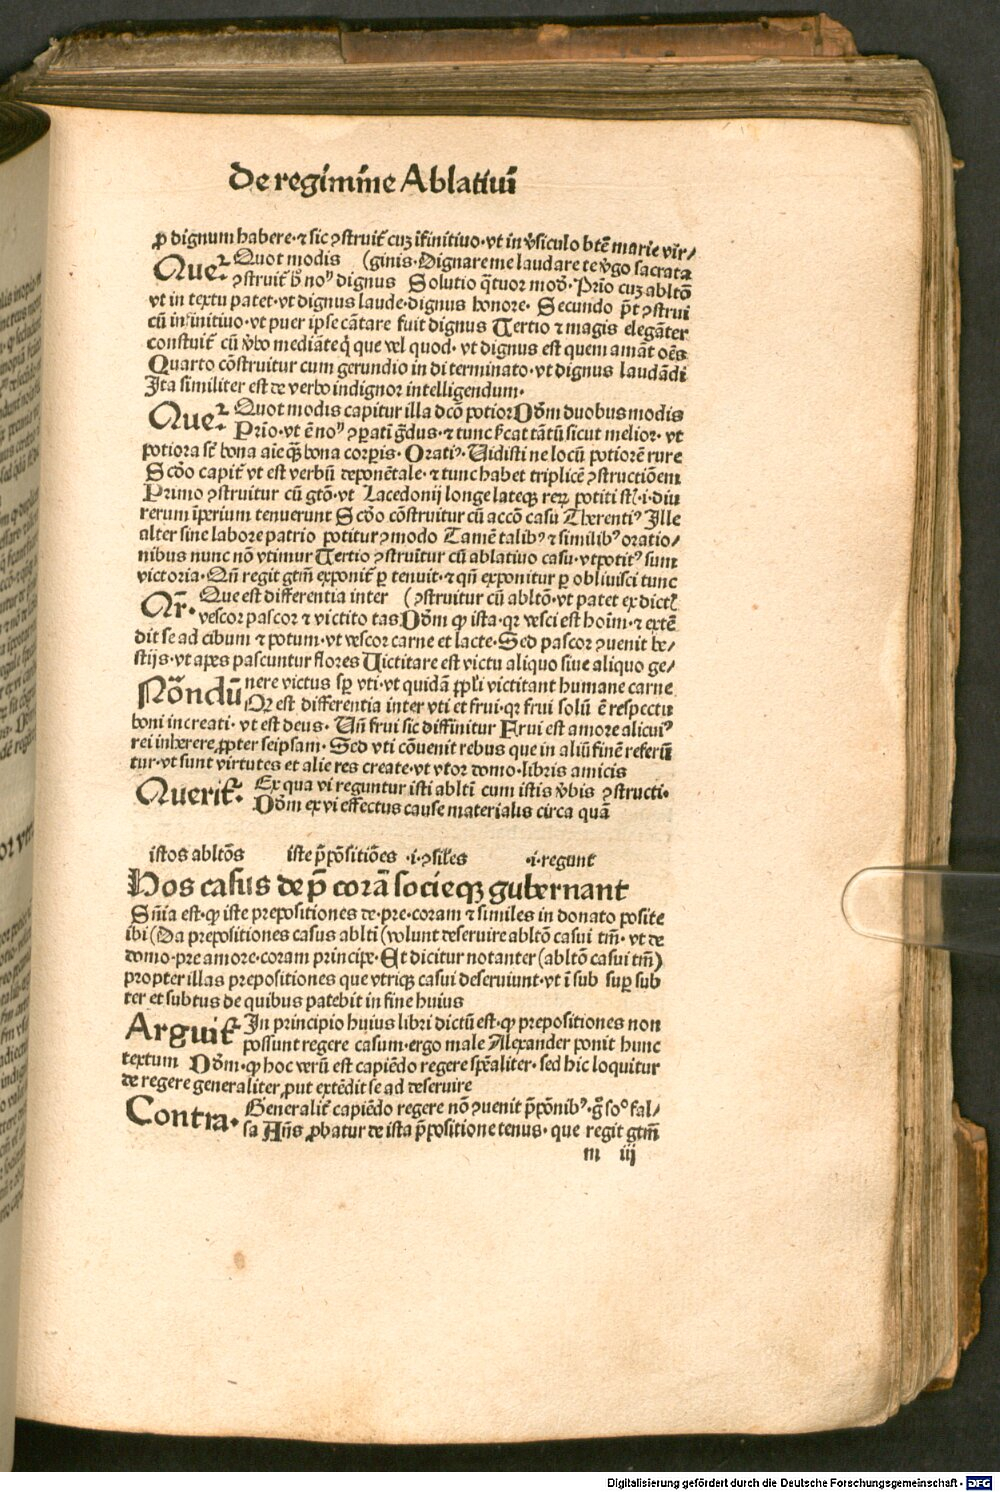 De regimīne Ablatiuū
ꝓ dignum habere·⁊ sic ꝯstruit᷑ cuꝫ īfinitiuo·vt in v̓siculo btē marie vir⸗
Queꝛ᷑ Quot modis (ginis·Dignare me laudare te v̓go sacrata
ꝯstruit᷑ dignus Solutio q̄tuor mod̓·Prīo cuꝫ abltō
vt in textu patet·vt dignus laude·dignus honore· Secundo p̄t ꝯstrui
cū infinitiuo·vt puer ipse cātare fuit dignus Tertio ⁊ magis elegāter
construit᷑ cū v̓bo mediāte q̄ que vel quod· vt dignus est quem amāt oēs
Quarto cōstruitur cum gerundio in di terminato·vt dignus laudādi
Ita similiter est de verbo indignor intelligendum·
Queꝛ᷑ Quot modis capitur illa dcō potior Dōm duobus modis
Prīo·vt ē noꝰ ꝯꝑati g̃dus·⁊ tunc tātū sicut melior· vt
potiora st̄ bona aīe qꝫ bona corꝑis· Oratiꝰ·Uidisti ne locū potiorē rure
Scd̓o capit᷑ vt est verbū deponētale·⁊ tunc habet triplicē ꝯstructiōem
Primo ꝯstruitur cū gtō·vt Lacedonij longe lateqꝫ reꝝ potiti st̄·i·diu
rerum īperium tenuerunt Scd̓o cōstruitur cū accō casu Therentiꝰ Ille
alter sine labore patrio potitur ꝯmodo Tamē talibꝰ ⁊ similibꝰ oratio⸗
nibus nunc nō vtimur Tertio ꝯstruitur cū ablatiuo casu·vt potitꝰ sum
victoria·Qn̄ regit gtm̄ exponit᷑ ꝑ tenuit·⁊ qn̄ exponitur ꝑ obliuisci tunc
Qꝛ̄· Que est differentia inter (ꝯstruitur cū abltō·vt patet ex dictꝭ
vescor pascor ⁊ victito tas Dōm ꝙ ista·qꝛ vesci est hoīm·⁊ extē
dit se ad cibum ⁊ potum·vt vescor carne et lacte·Sed pascor ꝯuenit be⸗
stijs·vt apes pascuntur flores Uictitare est victu aliquo siue aliquo ge⸗
Nōndū nere victus sꝑ vti·vt quidā victitant humane carne
Qꝛ est differentia inter vti et frui·qꝛ frui solū ē respectu
boni increati·vt est deus· Un̄ frui sic diffinitur Frui est amore alicuiꝰ
rei inherere ꝓpter seipsam· Sed vti cōuenit rebus que in aliū finē referū
tur·vt sunt virtutes et alie res create·vt vtor domo·libris amicis
Querit᷑· Ex qua vi reguntur isti abltī cum istis v̓bis ꝯstructi·
Dōm ex vi effectus cause materialis circa quā
istos abltōs iste p̄pōsitiōes ·i·ꝯsiles ·i·regunt
Hos casus de p̄ corā socieqꝫ gubernant
Sn̄ia est·ꝙ iste prepositiones de·pre·coram ⁊ similes in donato posite
ibi (Da prepositiones casus abltī (volunt deseruire abltō casui tm̄· vt de
domo·pre amore·coram principe·Et dicitur notanter (abltō casui tm̄)
propter illas prepositiones que vtriqꝫ casui deseruiunt·vt ī sub suꝑ sub
ter et subtus de quibus patebit in fine huius
Arguit᷑ In principio huius libri dictū est·ꝙ prepositiones non
possunt regere casum·ergo male Alexander ponit hunc
textum Dōm·ꝙ hoc verū est capiēdo regere spēaliter·sed hic loquitur
de regere generaliter ꝓut extēdit se ad deseruire
Contra· Generalit᷑ capiēdo regere nō ꝯuenit p̄pōnibꝰ·g̊ soᵒ fal⸗
sa Añs ꝓbatur de ista p̄positione tenus· que regit gtm̄
m iij
Digitalisierung gefördert durch die Deutsche Forschungsgemeinschaft - DFG